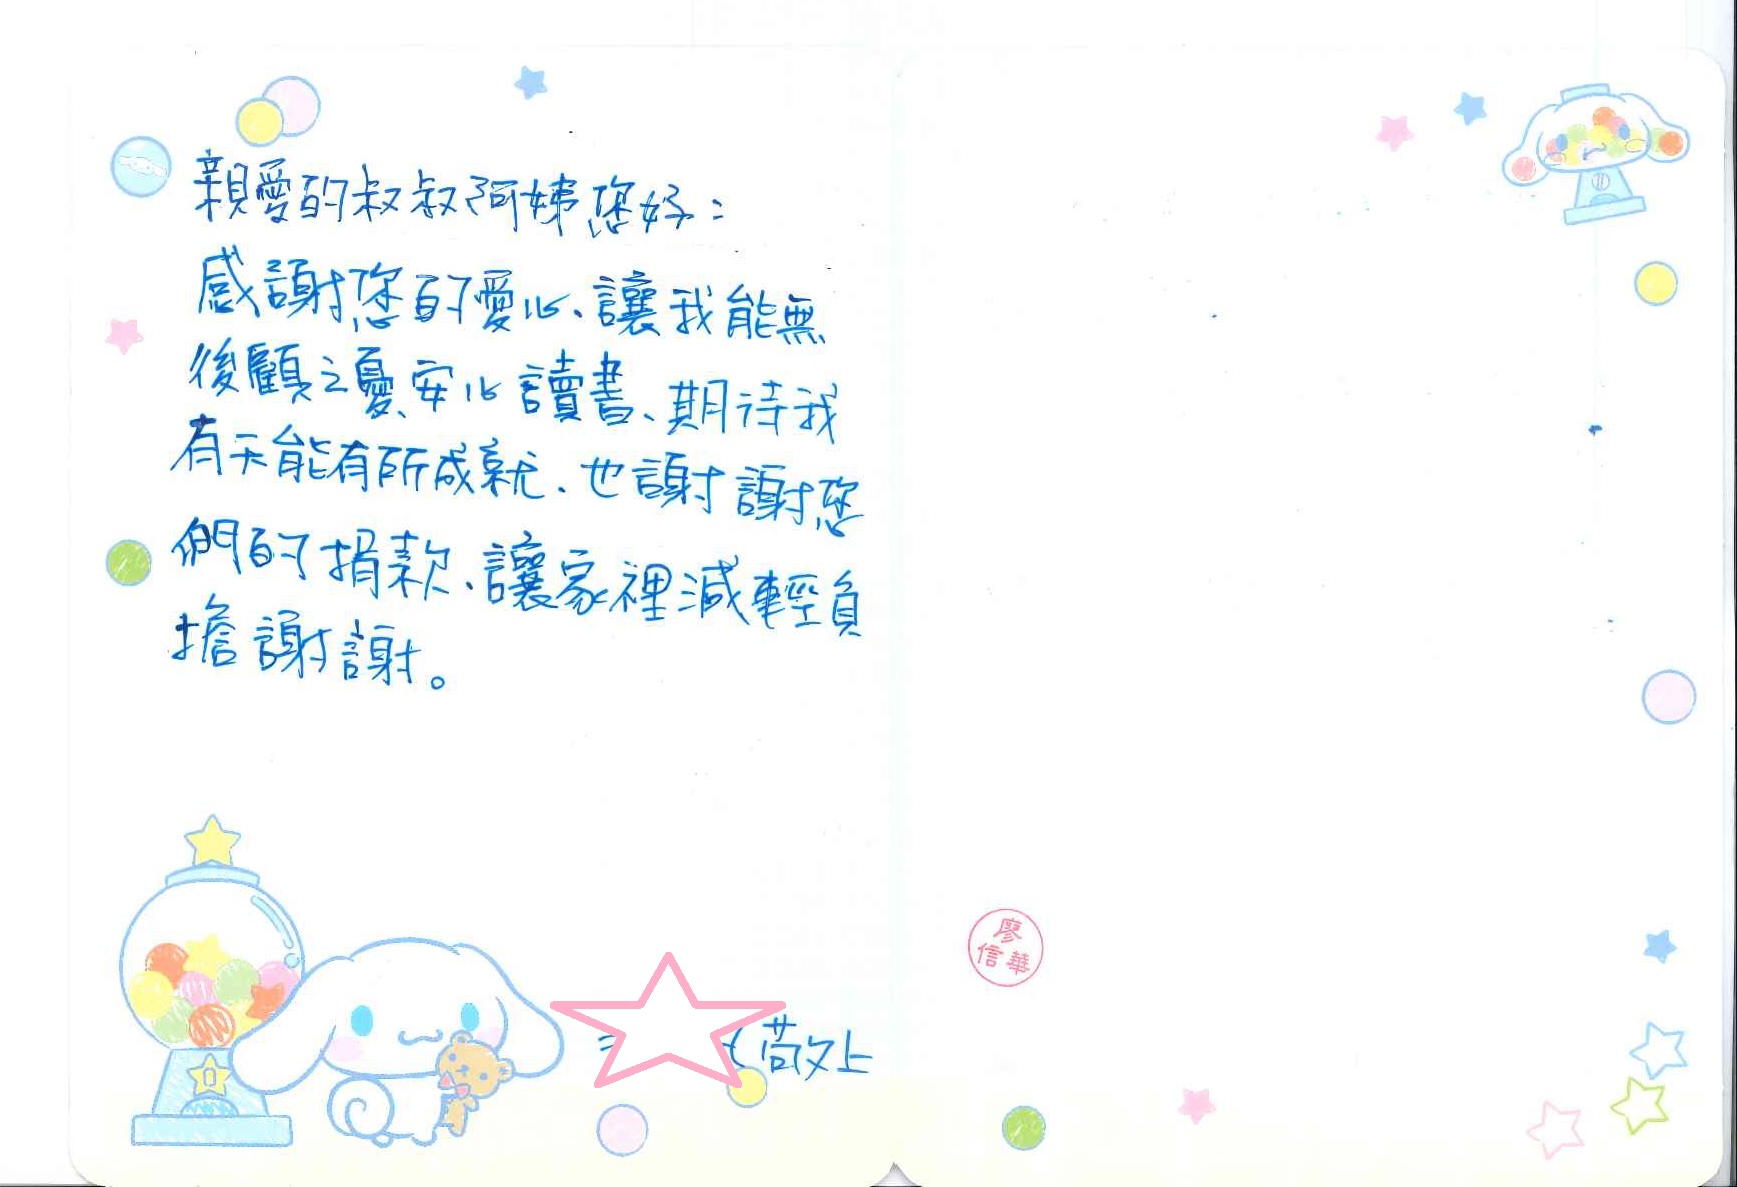 親愛的叔叔阿姊您好：
感謝您的愛心、讓我能無
後顧之憂安心讀書、期待我
有天能有所成就、也謝謝您
們的捐款、讓家裡減輕負
擔謝謝。
敬上
廖
信華